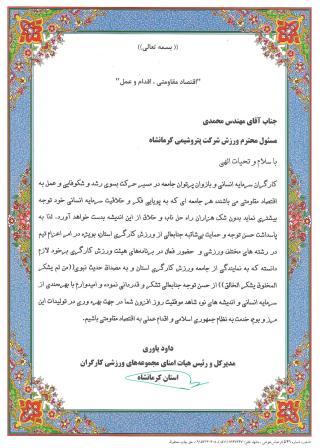 (( بسمه تعالی ))
"اقتصاد مقاومتی ، اقدام و عمل"
جناب آقای مهندس محمدی
مسئول محترم ورزش شرکت پتروشیمی کرمانشاه
با سلام و تحیات الهی
کارگران سرمایه انسانی و بازوان پرتوان جامعه در مسیر حرکت بسوی رشد و شکوفایی و عمل به
اقتصاد مقاومتی می باشند، هر جامعه ای که به پویایی فکر و خلاقیت سرمایه انسانی خود توجه
بیشتری نماید بدون شک هزاران راه حل ناب و خلاق از این اندیشه بدست خواهد آورد. لذا به
پاسداشت حسن توجه و حمایت بی‌شائبه جنابعالی از ورزش کارگری استان بویژه در امر اعزام تیم
در رشته های مختلف ورزشی و حضور فعال در برنامه‌های هیئت ورزش کارگری برخود لازم
دانسته که به نمایندگی از جامعه ورزش کارگری استان و به مصداق حدیث نبوی((من لم یشکر
المخلوق یشکر الخالق)) از حسن توجه جنابعالی تشکر و قدردانی نموده و امیدوارم با بهره‌مندی از
سرمایه انسانی و اندیشه های نو، شاهد موفقیت روز افزون شما در جهت بهره وری در تولیدات این
مرز و بوم، خدمت به نظام جمهوری اسلامی و اقدام عملی به اقتصاد مقاومتی باشیم.
داود یاوری
مدیرکل و رئیس هیات امنای مجموعه‌های ورزشی کارگران
استان کرمانشاه